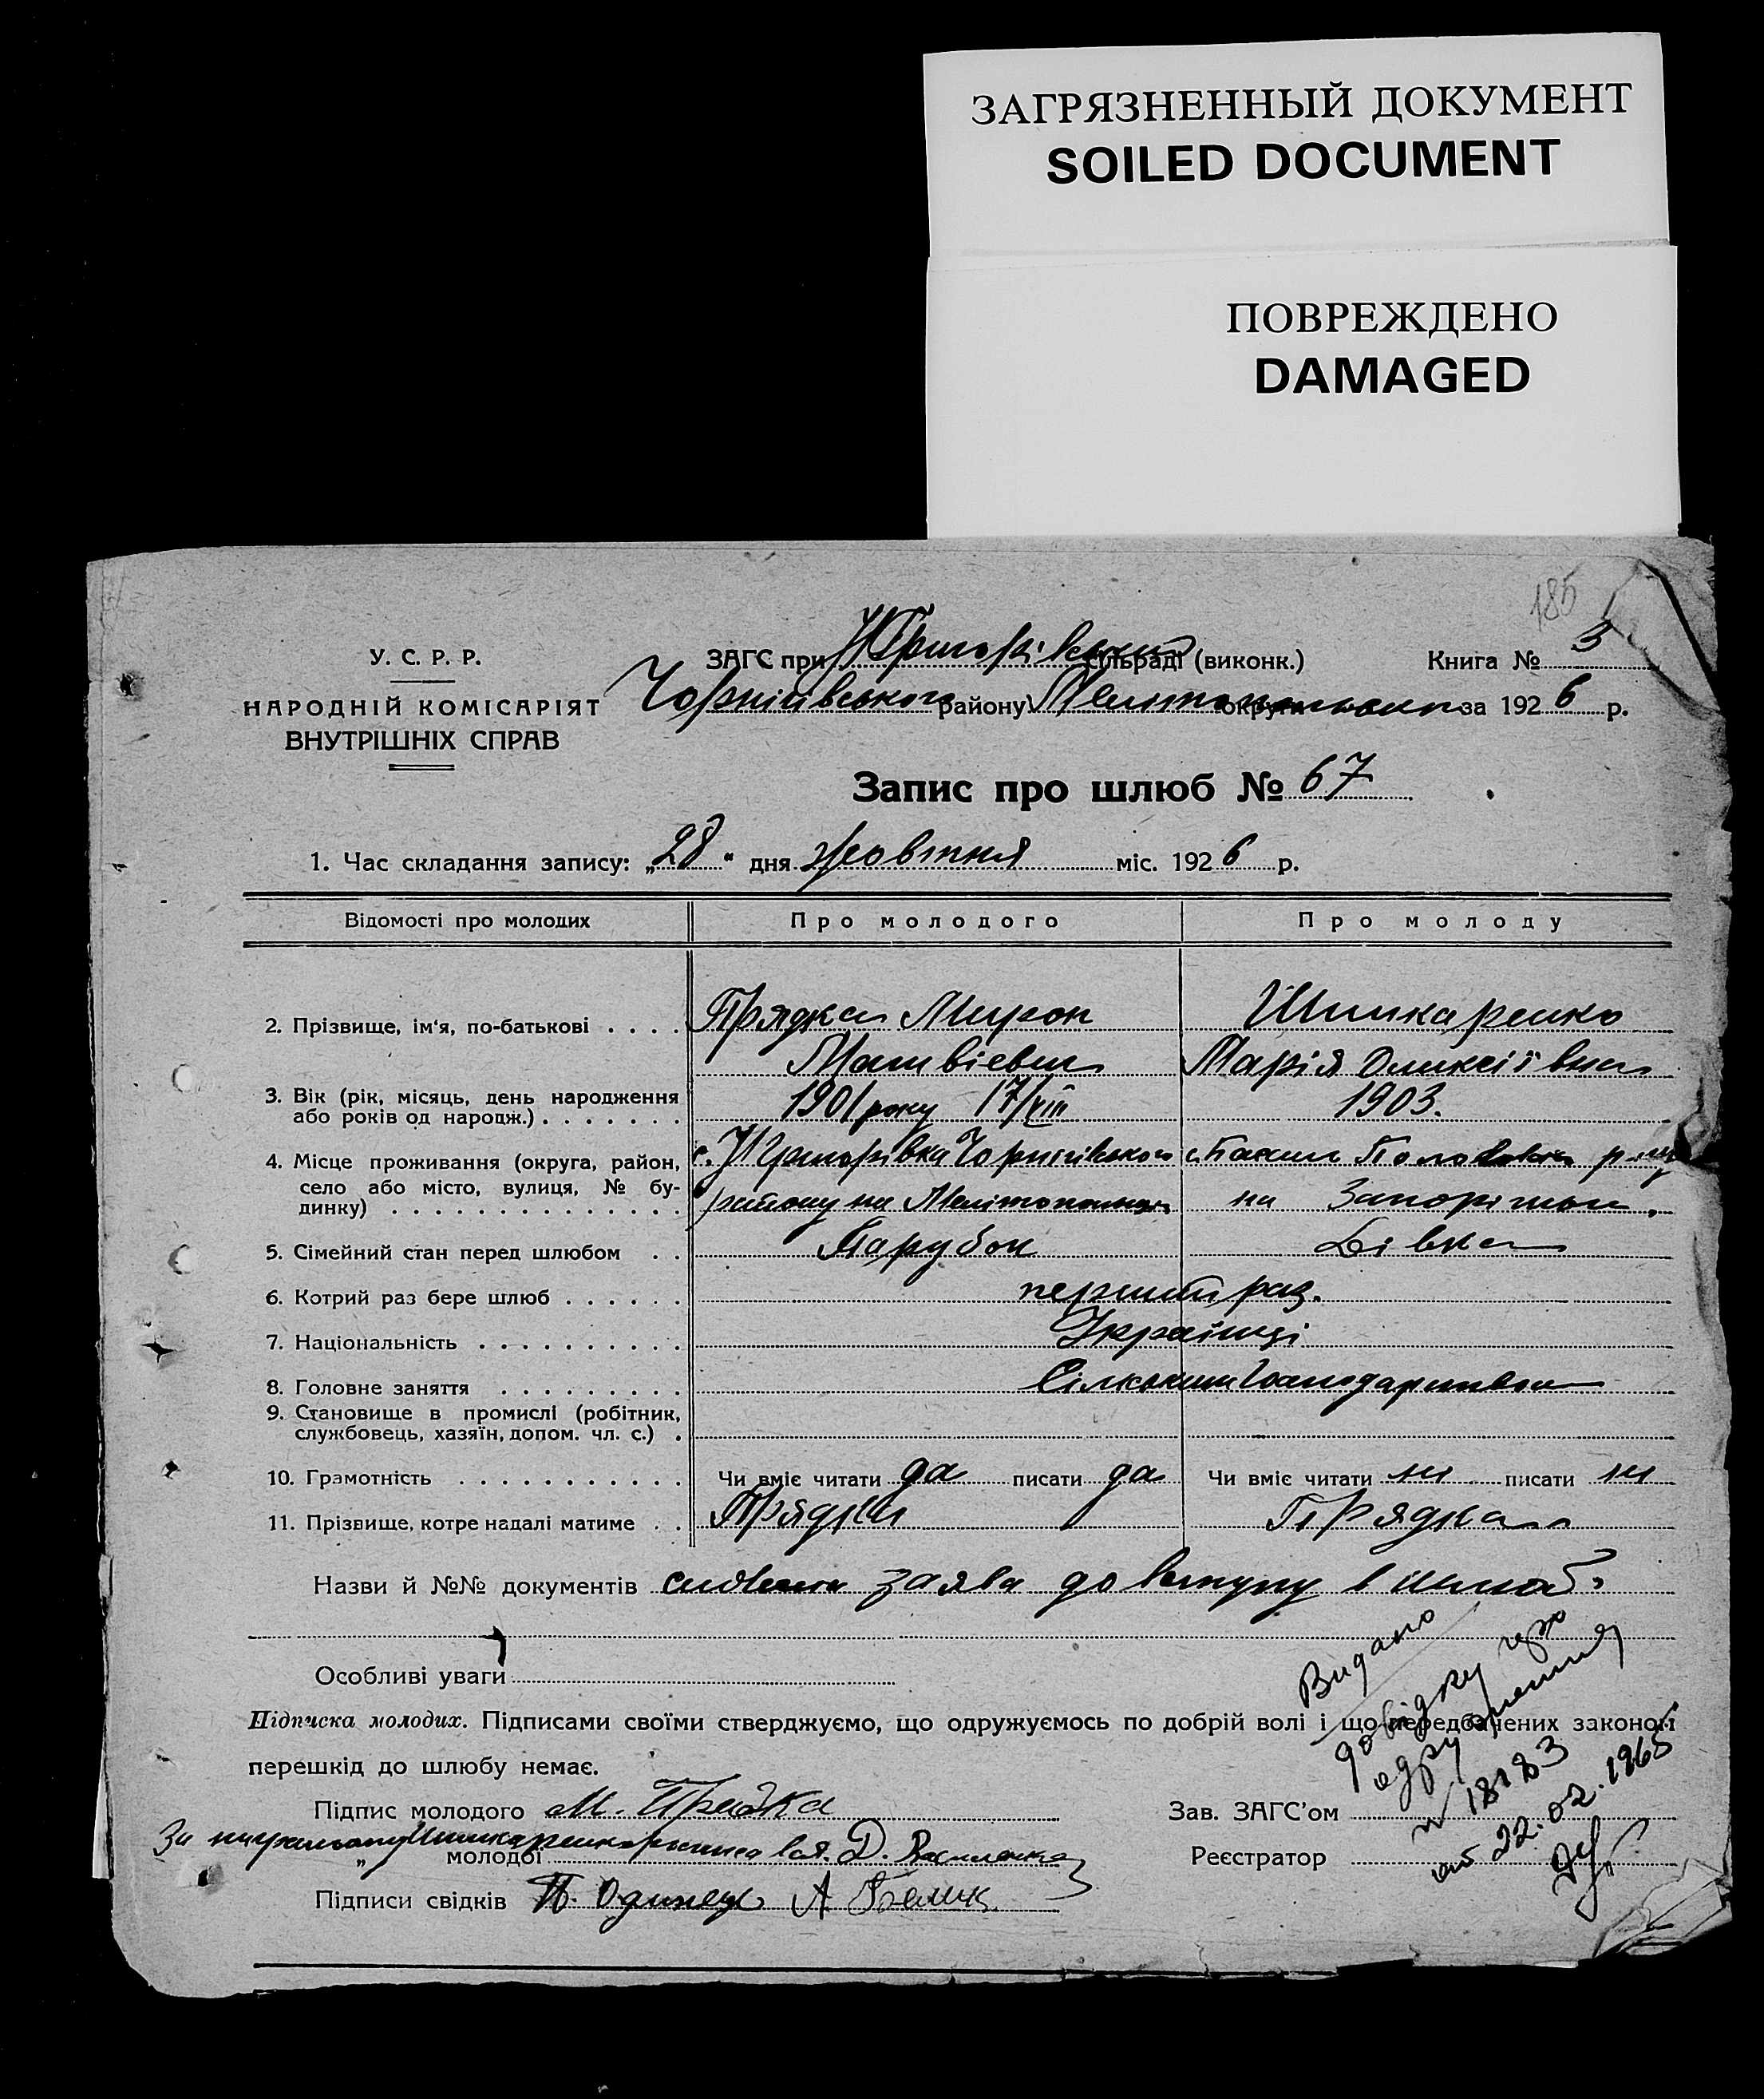 ЗАГРЯЗНЕННЫЙ ДОКУМЕНТ
SOILED DOCUMENT
ПОВРЕЖДЕНО
DAMAGED
185
У. С. Р. Р.
НАРОДНІЙ КОМІСАРІЯТ
ВНУТРІШНІХ СПРАВ
ЗАГС при сільраді (виконк.) Книга № 3
Чорнігівського району округи за 1926 р.
Запис про шлюб № 67
1. Час складання запису: „28" дня жовтня міс. 1926 р.
Відомості про молодих Про молодого Про молоду
2. Прізвище, ім'я, по-батькові . . . . Прядка Мирон Шинкаренко
Матвієвич Марія Олексіївна
3. Вік (рік, місяць, день народження
або років од народж.) . . . . . . . 1901 року 17/VIII 1903.
4. Місце проживання (округа, район, Чорнігівського
село або місто, вулиця, № бу-
динку) . . . . . . . . . . . . . . району на на
5. Сімейний стан перед шлюбом . . Парубок Дівка
6. Котрий раз бере шлюб . . . . . . перший раз.
7. Національність . . . . . . . . . . Українці
8. Головне заняття . . . . . . . . .
9. Становище в промислі (робітник,
службовець, хазяїн, допом. чл. с.) .
10. Грамотність . . . . . . . . . . . Чи вміє читати да писати да Чи вміє читати ні писати ні
11. Прізвище, котре надалі матиме . . Прядка Прядка
Назви й №№ документів заява до вступу в шлюб.
Особливі уваги
Підписка молодих. Підписами своїми стверджуємо, що одружуємось по добрій волі і що передбачених законом
перешкід до шлюбу немає.
Підпис молодого М. Прядка
За неграмотну Шинкаренко
„ молодої
Підписи свідків П. Одинець А Белик
Зав. ЗАГС'ом
Реєстратор
Видано
довідку про
одруження
№ 18183
от 22.02.1965